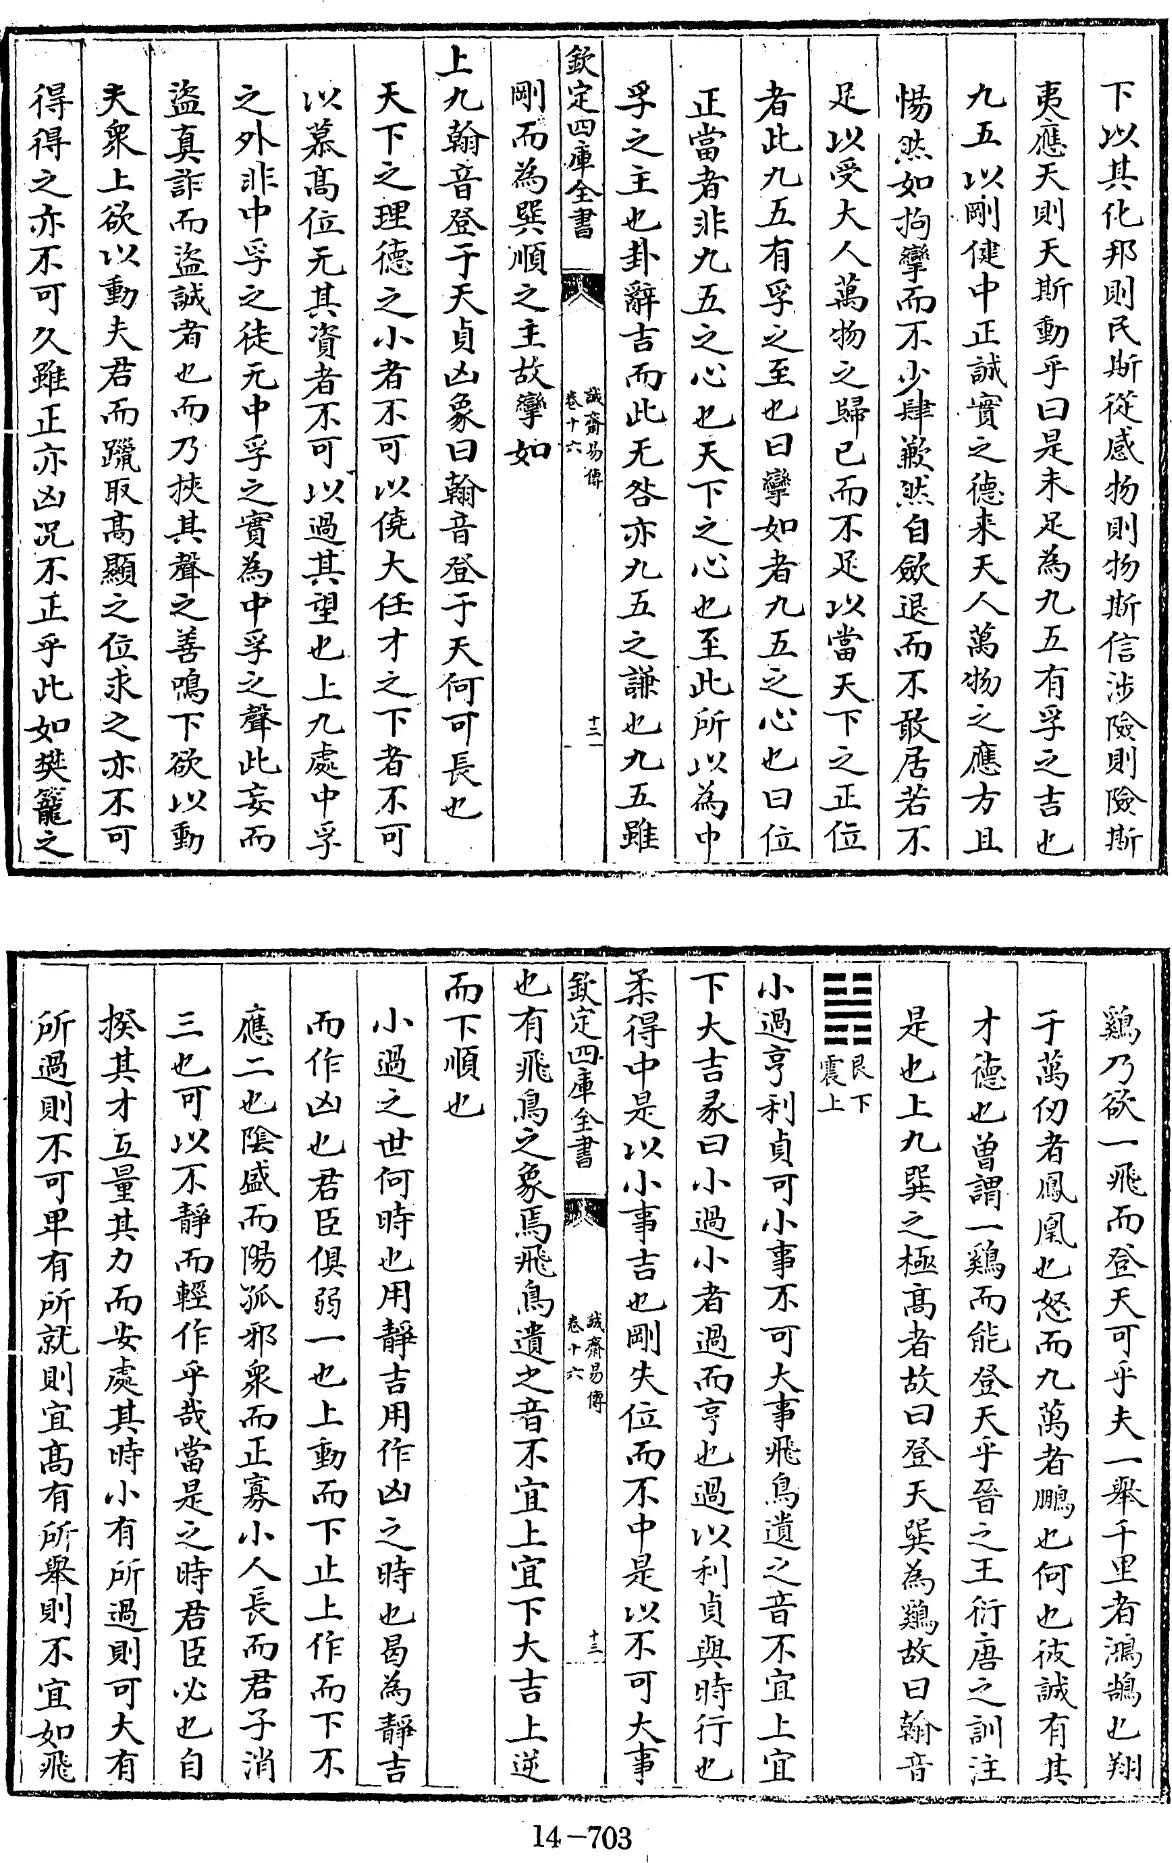 下以其化邦則民斯從感物則物斯信涉險則險斯
夷應天則天斯動乎曰是未足為九五有孚之吉也
九五以剛健中正誠實之德来天人萬物之應方且
惕然如拘攣而不少肆歉然自歛退而不敢居若不
足以受大人萬物之歸已而不足以當天下之正位
者此九五有孚之至也曰攣如者九五之心也曰位
正當者非九五之心也天下之心也至此所以為中
孚之主也卦辭吉而此无咎亦九五之謙也九五雖
欽定四庫全書
誠齋易傳
卷十六
十三
剛而為巽順之主故攣如
上九翰音登于天貞凶象曰翰音登于天何可長也
天下之理德之小者不可以僥大任才之下者不可
以慕髙位无其資者不可以過其望也上九處中孚
之外非中孚之徒无中孚之實為中孚之聲此妄而
盜真詐而盜誠者也而乃挾其聲之善鳴下欲以動
夫衆上欲以動夫君而躐取髙顯之位求之亦不可
得得之亦不可久雖正亦凶况不正乎此如樊籠之
鷄乃欲一飛而登天可乎夫一舉千里者鴻鵠也翔
于萬仞者鳳凰也怒而九萬者鵬也何也彼誠有其
才德也曽謂一鷄而能登天乎晉之王衍唐之訓注
是也上九巽之極髙者故曰登天巽為鷄故曰翰音
䷽
艮下
震上
小過亨利貞可小事不可大事飛鳥遺之音不宜上宜
下大吉彖曰小過小者過而亨也過以利貞與時行也
柔得中是以小事吉也剛失位而不中是以不可大事
欽定四庫全書
誠齋易傳
卷十六
十三
也有飛鳥之象焉飛鳥遺之音不宜上宜下大吉上逆
而下順也
小過之世何時也用靜吉用作凶之時也曷為靜吉
而作凶也君臣俱弱一也上動而下止上作而下不
應二也陰盛而陽孤邪衆而正寡小人長而君子消
三也可以不靜而輕作乎哉當是之時君臣必也自
揆其才互量其力而安處其時小有所過則可大有
所過則不可卑有所就則宜髙有所舉則不宜如飛
14-703